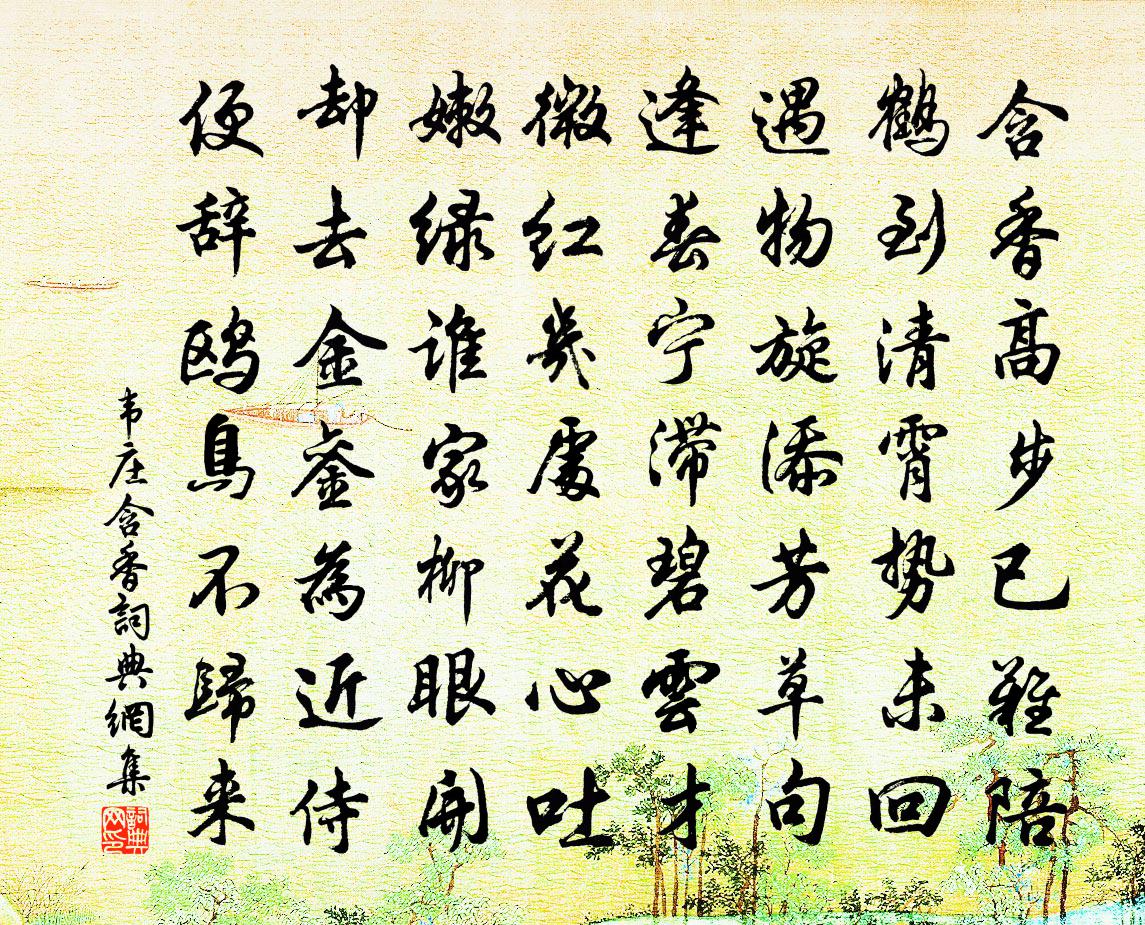 含香高步已難陪
鹤到清霄势未回
遇物旋添芳草句
逢春宁滞碧雲才
微红幾處花心吐
嫩绿谁家柳眼開
却去金銮為近侍
便辞鸥鳥不歸来
韦庄含香詞典網集
詞典网印